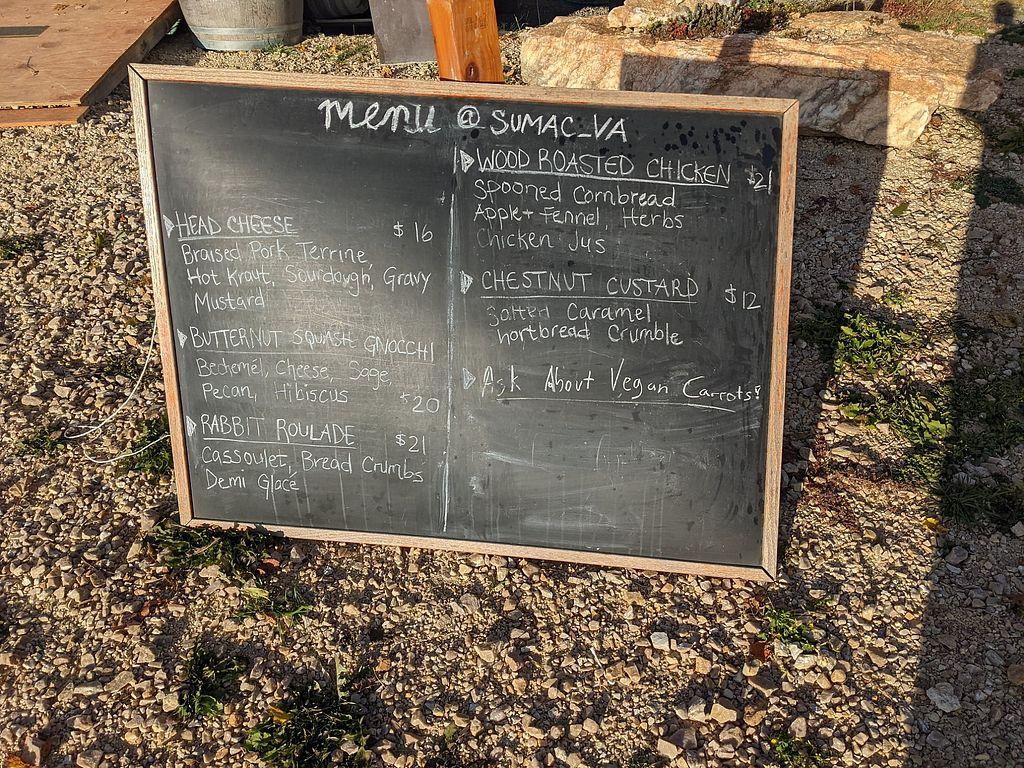 menu @ SUMAC_VA
HEAD CHEESE $16
Braised Pork Terrine
Hot Kraut, Sourdough, Gravy
Mustard
BUTTERNUT SQUASH GNOCCHI
Bechemél, Cheese, Sage,
Pecan, Hibiscus $20
RABBIT ROULADE $21
Cassoulet, Bread Crumbs
Demi Glacé
WOOD ROASTED CHICKEN $21
Spooned Cornbread
Apple + Fennel, Herbs
Chicken Jus
CHESTNUT CUSTARD $12
Salted Caramel
hortbread Crumble
Ask About Vegan Carrots!